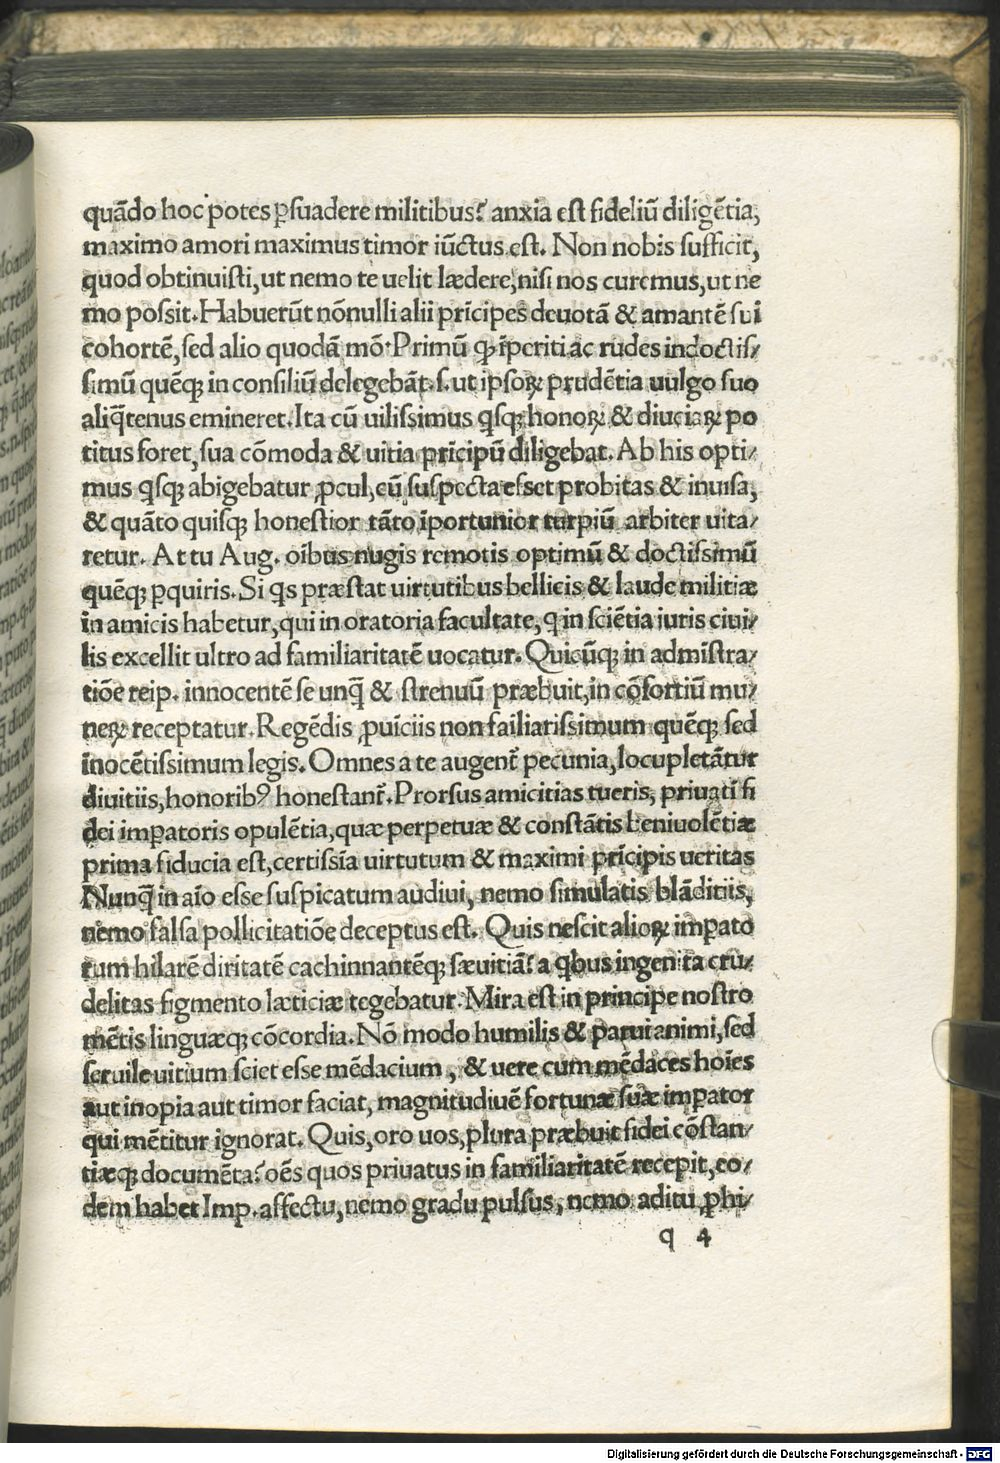 quādo hoc potes ꝑſuadere militibus? anxia eſt fideliū diligētia,
maximo amori maximus timor iūctus eſt. Non nobis ſufficit,
quod obtinuiſti, ut nemo te uelit lædere, niſi nos curemus, ut ne
mo poſsit. Habuerūt nōnulli alii prīcipes deuotā & amantē ſui
cohortē, ſed alio quodā mō. Primū ꝙ īperiti ac rudes indoctiſ/
ſimū quēꝗ in conſiliū delegebāt. ſ. ut ipſoꝝ prudētia uulgo ſuo
aliꝗ̄tenus emineret. Ita cū uiliſsimus ꝗſꝗ honoꝝ & diuciaꝝ po
titus foret, ſua cōmoda & uitia prīcipū diligebat. Ab his opti/
mus ꝗſꝗ abigebatur ꝓcul, cū ſuſpecta eſset probitas & inuiſa,
& quāto quiſꝗ honeſtior tāto īportunior turpiū arbiter uita/
retur. At tu Aug. oībus nugis remotis optimū & doctiſsimū
quēꝗ ꝑquiris. Si ꝗs præſtat uirtutibus bellicis & laude militiæ
in amicis habetur, qui in oratoria facultate, ꝗ in ſciētia iuris ciui/
lis excellit ultro ad familiaritatē uocatur. Quicūꝗ in admīſtra/
tiōe reip. innocentē ſe unꝗ̄ & ſtrenuū præbuit, in cōſortiū mu/
neꝝ receptatur. Regēdis ꝓuīciis non failiariſsimum quēꝗ ſed
īnocētiſsimum legis. Omnes a te augent᷑ pecunia, locupletātur
diuitiis, honoribꝰ honeſtant᷑. Prorſus amicitias tueris, priuati fi
dei imꝑatoris opulētia, quæ perpetuæ & conſtātis beniuolētiæ
prima fiducia eſt, certiſsīa uirtutum & maximi prīcipis ueritas
Nunꝗ̄ in aīo eſse ſuſpicatum audiui, nemo ſimulatis blāditiis,
nemo falſa pollicitatiōe deceptus eſt. Quis neſcit alioꝝ imꝑato
rum hilarē diritatē cachinnantēꝗ ſæuitiā? a ꝗbus ingenita cru/
delitas figmento læticiæ tegebatur. Mira eſt in principe noſtro
mētis linguæꝗ cōcordia. Nō modo humilis & parui animi, ſed
ſeruile uitium ſciet eſse mēdacium, & uere cum mēdaces hoīes
aut inopia aut timor faciat, magnitudiuē fortunæ ſuæ imꝑator
qui mētitur ignorat. Quis, oro uos, plura præbuit fidei cōſtan/
tiæꝗ documēta? oēs quos priuatus in familiaritatē recepit, eo/
dem habet Imp. affectu, nemo gradu pulſus, nemo aditu ꝓhi/
q 4
Digitalisierung gefördert durch die Deutsche Forschungsgemeinschaft - DFG